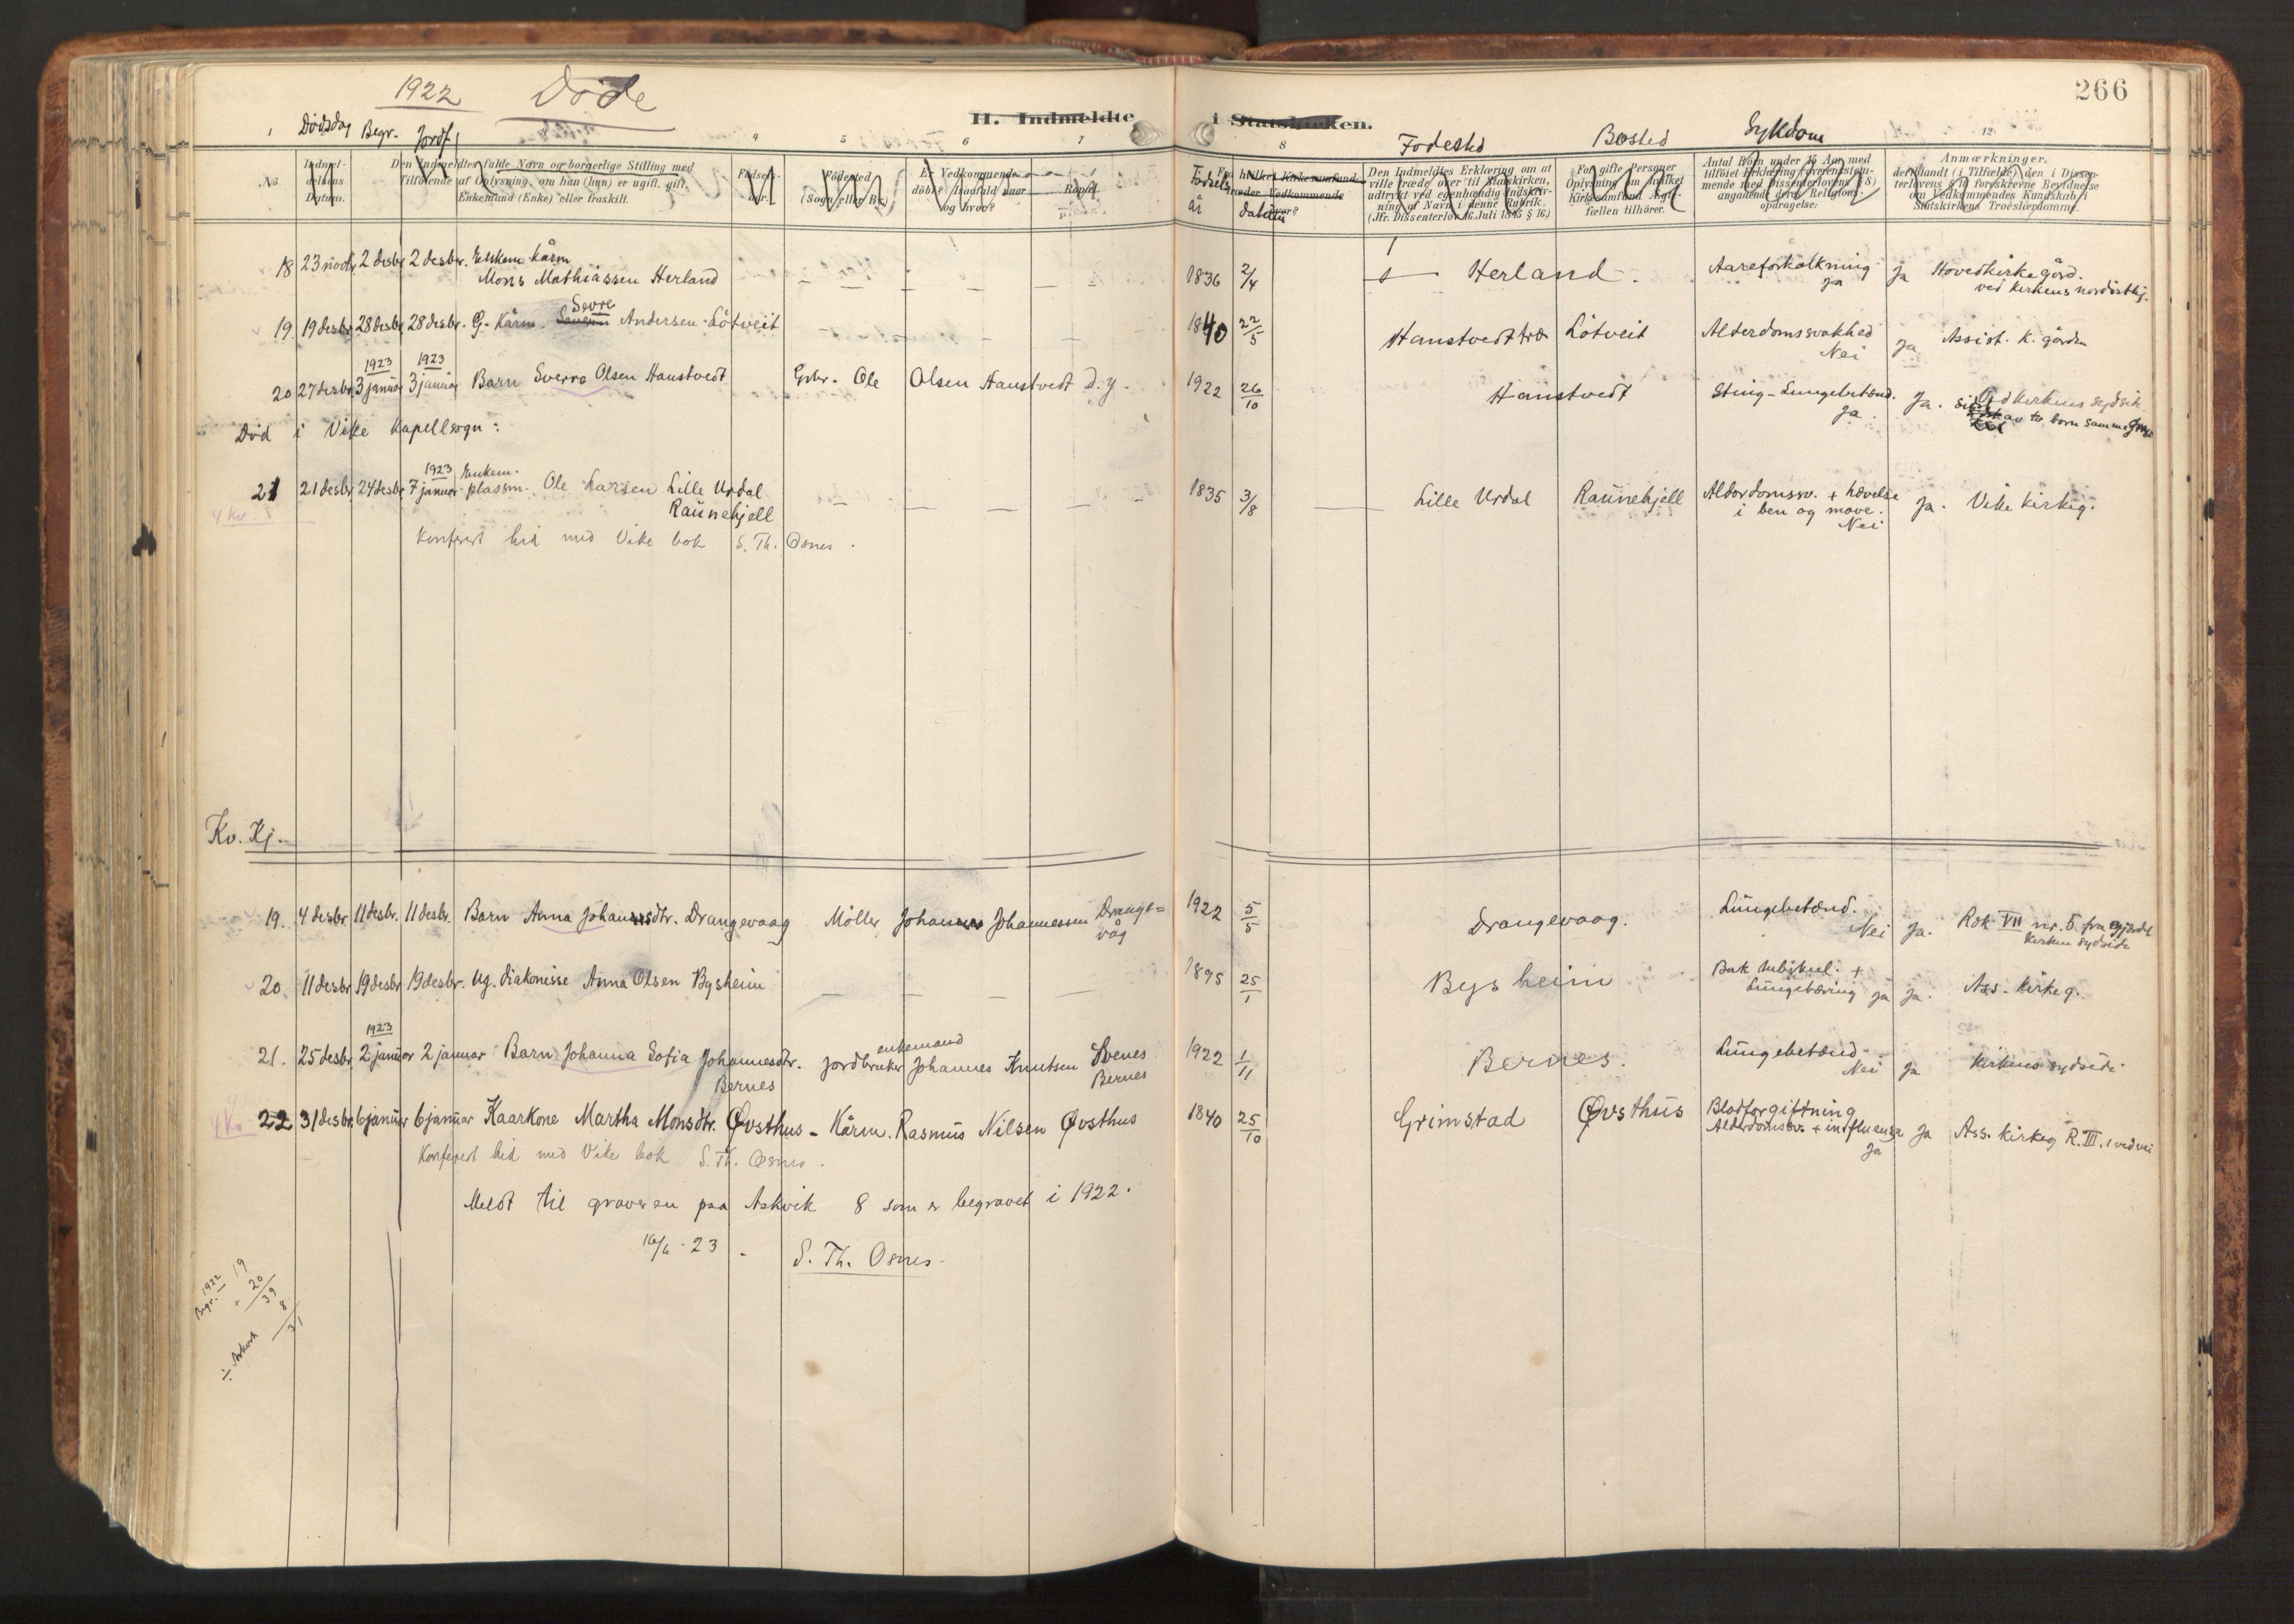 1922 Døde
H. Indmeldte i Statskirken.
266
1 Dødsdag Begr. Jordf. 4 5 6 7 8 Fødested Bosted Sykdom 12
No
Indmel-
delsens
Datum.
Den Indmeldtes fulde Navn og borgerlige Stilling med
Tilføiende af Oplysning, om han (hun) er ugift, gift,
Enkemand (Enke) eller fraskilt.
Fødsels-
aar.
Fødested
(Sogn eller By.)
Er Vedkommende
döbt? Isaafald naar
og hvor?
Fødsels
år
datum
hvilket Kirkesamfund
Vedkommende
Den Indmeldtes Erklæring om at
ville træde over til Statskirken,
udtrykt ved egenhændig Indskriv-
ning af Navn i denne Rubrik.
(Jfr. Dissenterlov 16 Juli 1845 § 16.)
For gifte Personer
Oplysning om hvilket
Kirkesamfund Ægte-
fællen tilhörer.
Antal Börn under 15 Aar med
tilföiet Erklæring (overensstem-
mende med Dissenterlovens § 8)
angaaende deres Religions-
opdragelse:
Anmærkninger,
deriblandt (i Tilfælde) den i Dissen-
terlovens § 16 foreskrevne Bevidnelse
om Vedkommendes Kundskab i
Statskirkens Troeslærdomme.
18 23 novbr 2 desbr 2 desbr. Enkem. kårm. 1836 2/4 Herland. Aareforkalkning ja Hovedkirkegård.
Mons Mathiassen Herland ja ved kirkens nordøsthj.
19. 19 desbr 28 desbr 28 desbr. G. Kårm. Severin Sevre Andersen Løtveit 1840 22/5 Hanstvedttræ Løtveit Alderdomssvakhed Nei ja Assist. k. gården
1923 1923
20 27 desbr 3 januar 3 januar Barn Sverre Olsen Hanstvedt Gbr. Ole Olsen Hanstvedt d.y. 1922 26/10 Hanstvedt Sting-Lungebetænd. ja Ja. Ved kirkens sydside
av to born samme grav
Død i Vike kapellsogn:
1923 Enkem.
21 21 desbr 24 desbr 7 januar plassm. Ole Larsen Lille Urdal 1835 3/8 Lille Urdal Raunehjell Alderdomssv. + hævelse ja. Vike kirkeg.
4 kv Raunehjell i ben og mave. Nei
Konferert hid med Vike bok S. Th. Osnes.
Kv. Kj.
19. 4 desbr 11 desbr. 11 desbr. Barn Anna Johannesdtr. Drangevaag Møller Johannes Johannessen Drange= 1922 5/5 Drangevaag. Lungebetænd. Nei ja. Rek VII nr. 5 fra gjærdet
våg kirkens sydside
20. 11 desbr 19 desbr 19 desbr. Ug. diakonisse Anna Olsen Bysheim 1895 25/1 Bysheim Buk tuberkul. + ja. Ass. kirkeg.
Lungetæring ja
1923
21. 25 desbr 2 januar 2 januar Barn Johanna Sofia Johannesdtr. Jordbruker enkemand Johannes Knutsen Svenes 1922 1/11 Bernes. Lungebetænd. Nei ja Kirkens sydside
Bernes Bernes
4 Kv 22 31 desbr 6 januar 6 januar Kaarkone Martha Monsdtr. Øvsthus - Kårm. Rasmus Nilsen Øvsthus 1840 25/10 Grimstad Øvsthus Blodforgiftning ja Ass. kirkeg R. III. 1 ved vei
Alderdomssv. + influensa ja
Konferert hid med Vike bok S. Th. Osnes.
Meldt til graveren paa Askvik 8 som er begravet i 1922.
16/6 - 23. S. Th. Osnes.
1922 19
Begr. + 20
39
÷ Askvik 8
31